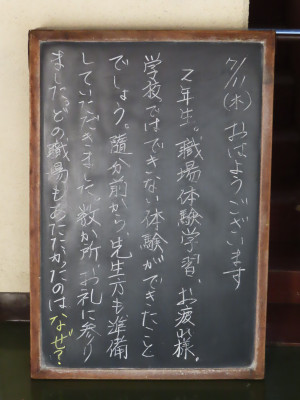 7/11(木) おはようございます
2年生。職場体験学習、お疲れ様。
学校ではできない体験ができたこと
でしょう。随分前から、先生方も準備
していただきました。数か所、お礼に参り
ました。どの職場もあたたかだのは なぜ?